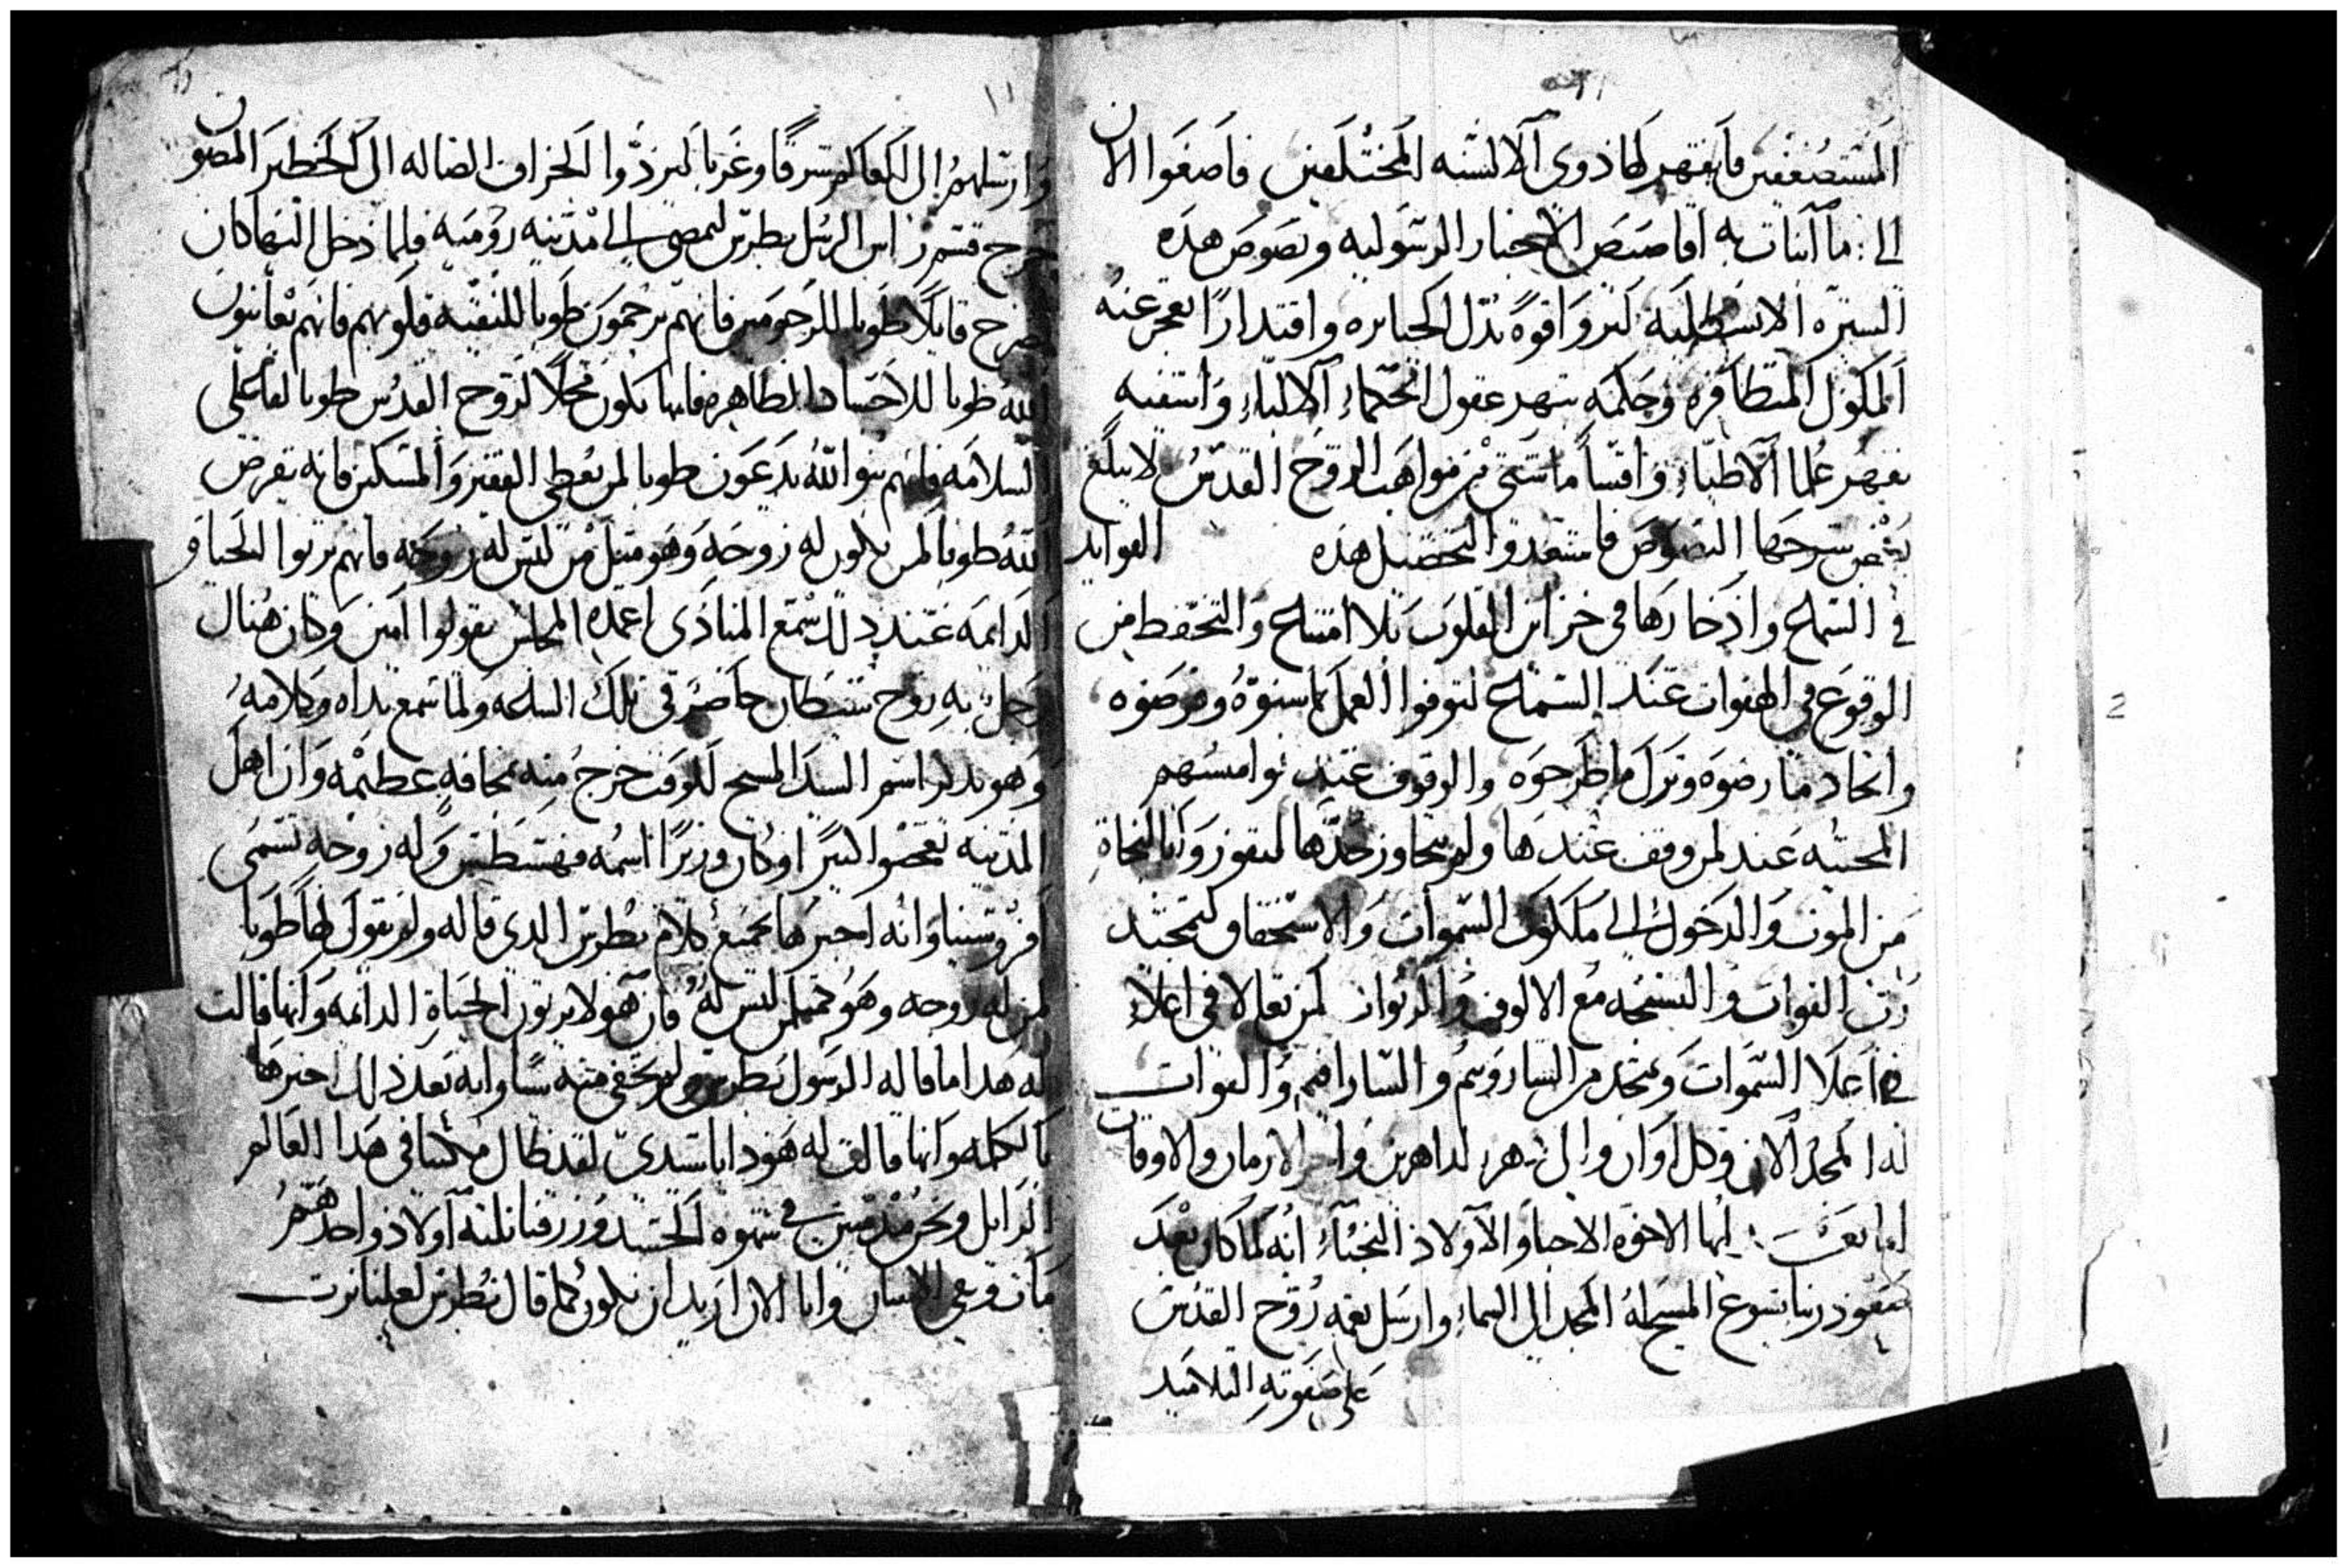 المستضعفين فايقهر لها ذوي الالسنه المختلفين فاصغوا الان
الي ما اتيات به اقاصيص الاخبار الرسوليه ونصوص هذه
السيره الاسطليه لتروا قوة تدل الجبابره واقتدارا يعجز عنه
الملوك المتظافره وحكمه تبهر عقول الحكماء الالباء واشفيه
تقهر علما الاطباء واقساما شتى من مواهب الروح القدس لا يبلغ
بعض شرحها النصوص فاستعدوا لتحصيل هذه الفوايد
في السماع واذخارها في خزاين القلوب بلا امتناع والتحفظ من
الوقوع في الهفوات عند السماع لتوفوا العمل بما سنوه وفرضوه
واتخاد ما رضوه وترك ما طرحوه والوقوف عند نواميسهم
المحييه عند لمن وقف عندها ولم يتجاوز حدها لتفوزوا بالنجاة
من الموت والدخول الي ملكوت السموات والاستحقاق لتمجيد
رب القوات والتسبحه مع الالوف والربوات لمن تعالا في اعلاء
في اعلا السموات ومجد من الساروبيم والسارافيم والقوات
له المجد الان وكل اوان والى دهر الداهرين واخر الازمان والاوقات
اما بعد ايها الاخوه الاحبا والاولاد النجباء انه لما كان بعد
صعود ربنا يسوع المسيح له المجد الى السماء وارسل نعمه روح القدس
على صفوته التلاميد
١١
وارسلهم الى العالم شرقا وغربا ليردوا الخراف الضاله الى الحظير المصون
خرج قسم راس الرسل بطرس ليمضي الي مدينه روميه فلما دخل اليها كان
يصرخ قايلا طوبا للرحومين فانهم يرحمون طوبا للنقيه قلوبهم فانهم يعاينون
الله طوبا للاجساد الطاهره فانها تكون محلا لروح القدس طوبا لفاعلي
السلامه فانهم بنوا الله يدعون طوبا لمن يعطي الفقير والمسكين فانه يقرض
الله طوبا لمن يكون له زوجه وهو مثل من ليس له زوجه فانهم يرتوا الحياة
الدايمه عند ذلك سمع المنادى اعمده المجلس يقولوا امين وكان هناك
رجل به روح شيطان حاضر في تلك الساعه ولما سمع نداه وكلامه
وهو يذكر اسم السيد المسيح للوقت خرج منه بمخافه عظيمه وان اهل
المدينه تعجبوا كثيرا وكان وزيرا اسمه وله زوجه تسمى
افروسينا وانه اخبرها بجميع كلام بطرس الدي قاله ولم يقول لها طوبا
لمن له زوجه وهو كمثل من ليس له فان هولا يرتون الحياة الدايمه وانها قالت
له هدا ما قاله الرسول بطرس ولم يخفي منه شيا وانه بعد ذلك اخبرها
بالكلمه وانها قالت له هودا يا سيدي لقد طال مكتنا في هدا العالم
الزايل ونحن مدمنين في شهوه الجسد ورزقنا ثلثه اولاد واحد منهم
مات وبقي اثنين وانا الان اريد ان نكون كما قال بطرس لعلنا نرت